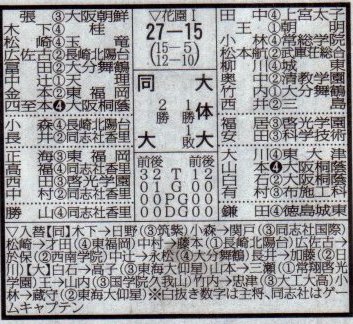 ▽花園Ⅰ
27―15
(15―5)
(12―10)
同大
大体大
2勝
1勝1敗
張③大阪朝鮮
木下④桂
松崎④玉竜
広佐古②長崎北陽台
冨田②大分舞鶴
辻①天理
金本②東福岡
西至本❹大阪桐蔭
小森④長崎北陽台
長井②同志社香里
正海③東福岡
高福④同志社香里
西田③啓光学園
中村②同志社香里
勝山④同志社香里
田中④上宮太子
王①朝明
小林④荒総学院
松本航②武庫荘総合
柳川④城東
奥中②清教学園
竹内①大分舞鶴
西井②三島
福居③啓光学園
安田③科学技術
大川④東大津
山本❹大阪桐蔭
白石②大阪桐蔭
有村③布施工科
鎌田④徳島城東
前後 前後
32T12
01G00
00PG00
00DG00
▽入替【同】木下→日野③筑紫)小森→関戸③同志社国際)
松崎→才田④東福岡)中村→藤本①長崎北陽台)広佐古→
於保②西南学院)中辻→永松④大分舞鶴)長井→加藤②日
川)【大】白石→高子③東海大仰星)山本→三瀬①常翔啓光
学園)王→山内③国学院久我山)竹内→忠津③大工大高)小
林→蔵守②東海大仰星)※白抜き数字は主将、同志社はゲー
ムキャプテン